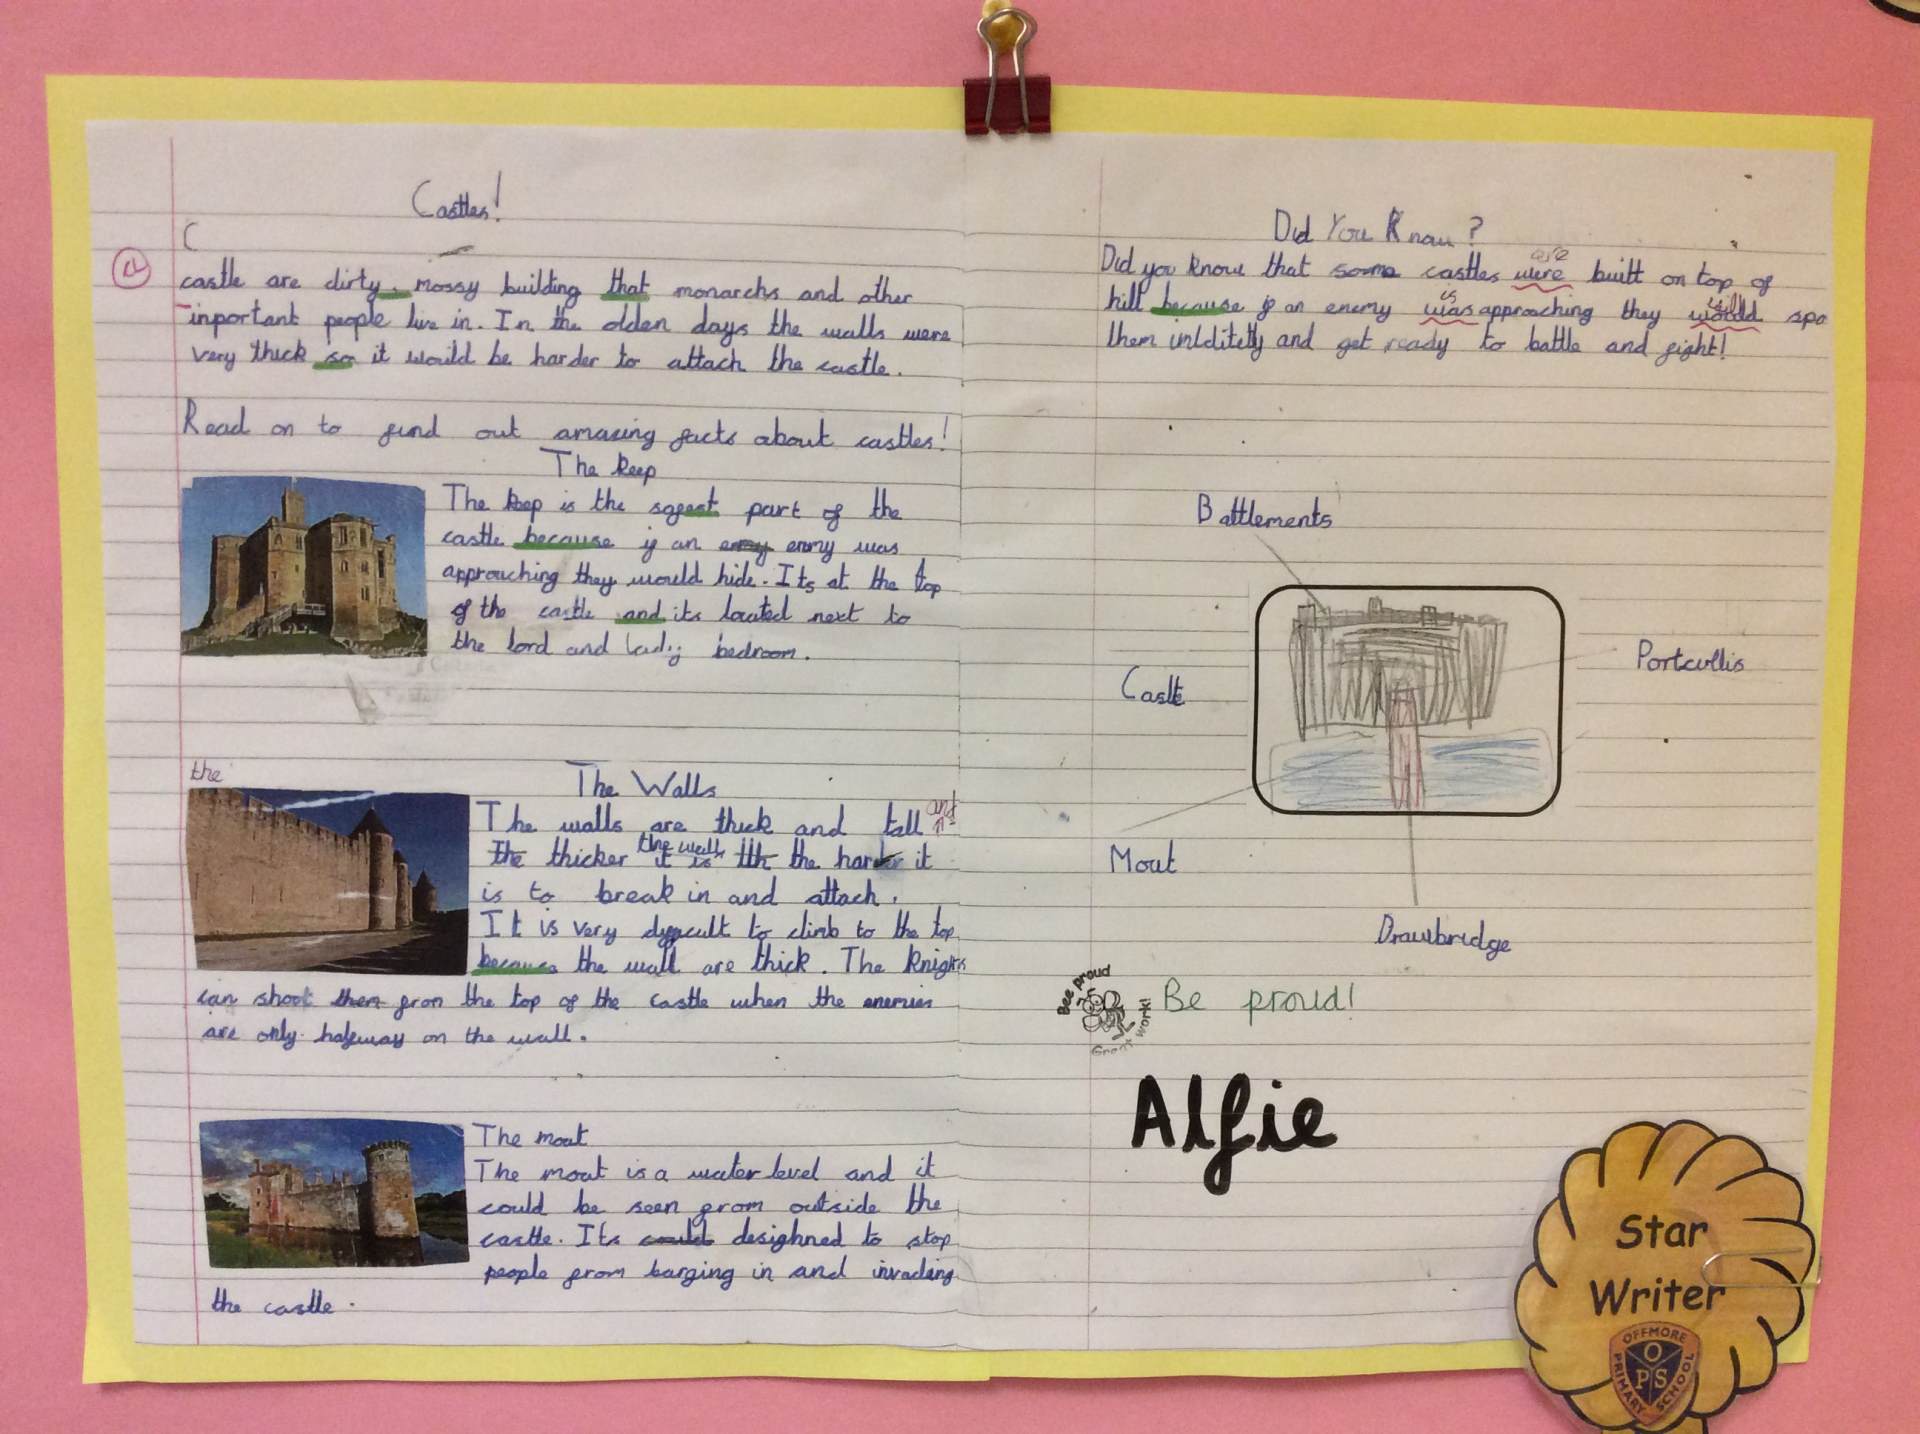 Castles!
C
castle are dirty, mossy building that monarchs and other
inportant people live in. In the olden days the walls were
very thick so it would be harder to attach the castle.
Read on to find out amazing facts about castles!
The Keep
The keep is the safest part of the
castle because if an enmy was
approaching they would hide. Its at the top
of the castle and its located next to
the lord and lady bedroom.
the
The Walls
The walls are thick and tall and
The thicker the wall it is the the harder it
is to break in and attach.
It is very difficult to climb to the top
because the wall are thick. The Knights
can shoot them from the top of the castle when the enemies
are only halfway on the wall.
The moat
The moat is a water level and it
could be seen from outside the
castle. Its could desighned to stop
people from barging in and invading
the castle.
Did You Know?
are
Did you know that some castles were built on top of
is will
hill because if an enemy was approaching they would spo
them and get ready to battle and fight!
Battlements
Portcullis
Castle
Moat
Drawbridge
Bee proud
Great work!
Be proud!
Alfie
Star
Writer
OFFMORE
PRIMARY SCHOOL
O
P S